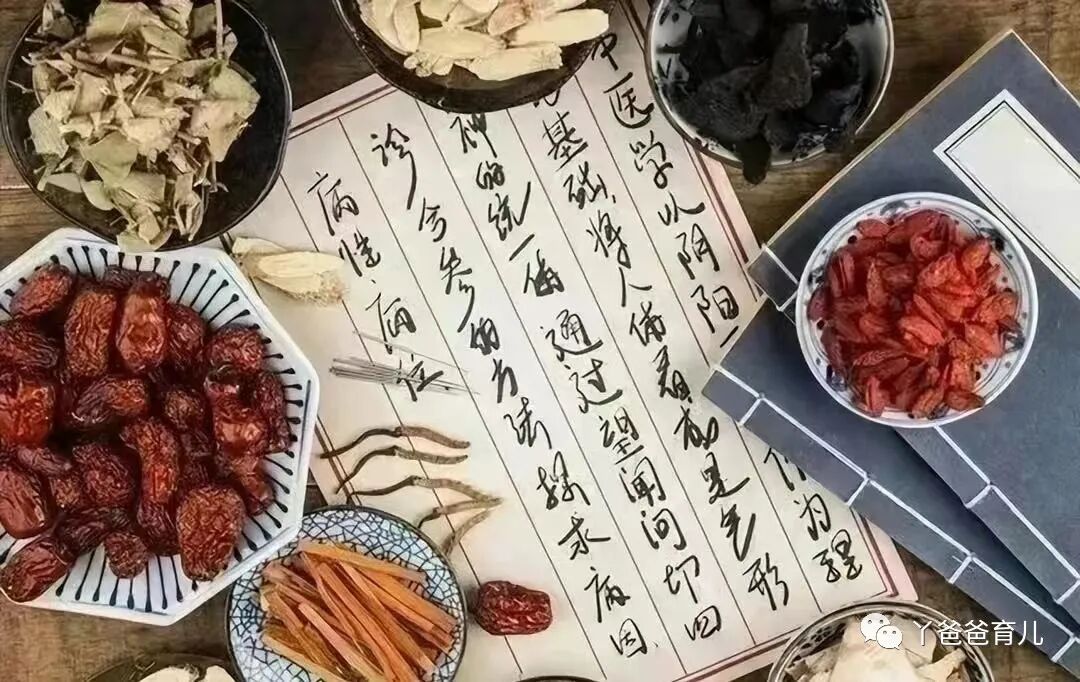 中医学以阴阳作为理
基础,将人体看成是气形
神的统一体通过望闻问切四
诊合参的方法探求病因
病性病位
丫爸爸育儿